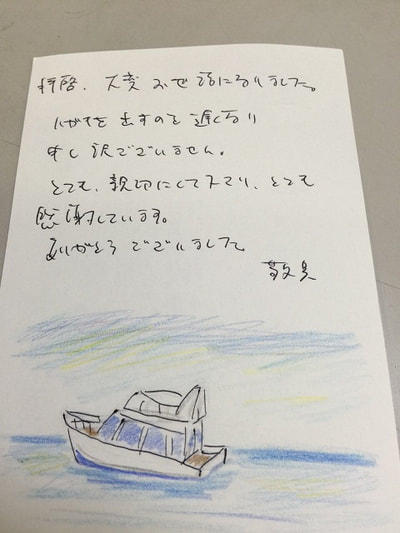 拝啓、大変お世話になりました。
ハガキを出すのを遅くなり
申し訳でございません。
とても、親切にして下さり、とても
感謝しています。
ありがとうございました
敬具